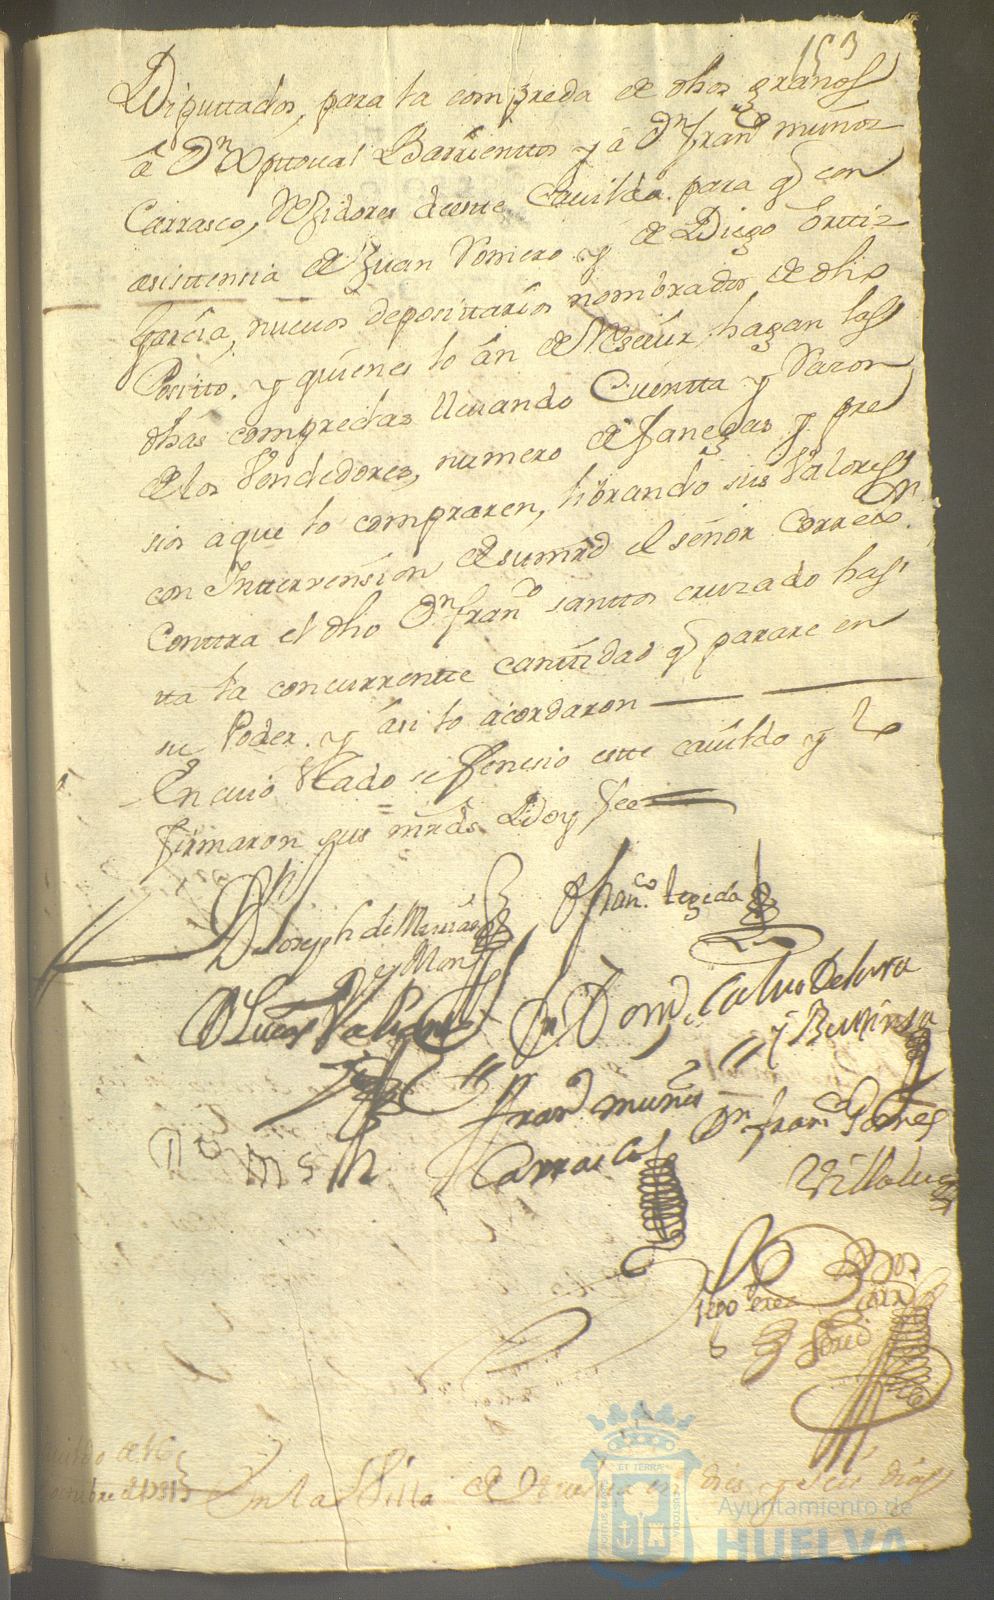 153
Diputtados, para la compreda de dhos granos
â Dn Xpttoual Barrienttos y â Dn Franco muñoz
Carrasco, Rexidores deestte Cauildo. para q con
asisttensia de Juan Romero y de Diego Orttiz
Garcia, nueuos deposittarios nombrados de dho
Posito. y quienes lo ân de Reseuir, hagan las
dhas compredas lleuando Cuentta y Razon
de los Vendedores, numero de fanegas y pre
sios a que lo compraren, librando sus Valores
con Intteruension de su mrd el señor Corregor
Conttra el dho Dn Franco santtos cruzado has
tta la concurrentte canttidad q parare en
su Poder. y asi lo acordaron
En cuio esttado se fenesio estte cauildo y lo
firmaron sus mrds Doy fee
D Joseph de
y Mon
D Franco tegida
D Lucas Valiente
Dn Domo Calbo Delara
y
Franco muñoz
Carrasco
Dn Franco Gomes
Villalu
Perez
cauildo de 16
octubre de
En la Villa de Huelua en dies y seis dias
ET TERRAE CUSTODIA
PORTUS MARIS
Ayuntamiento de
HUELVA